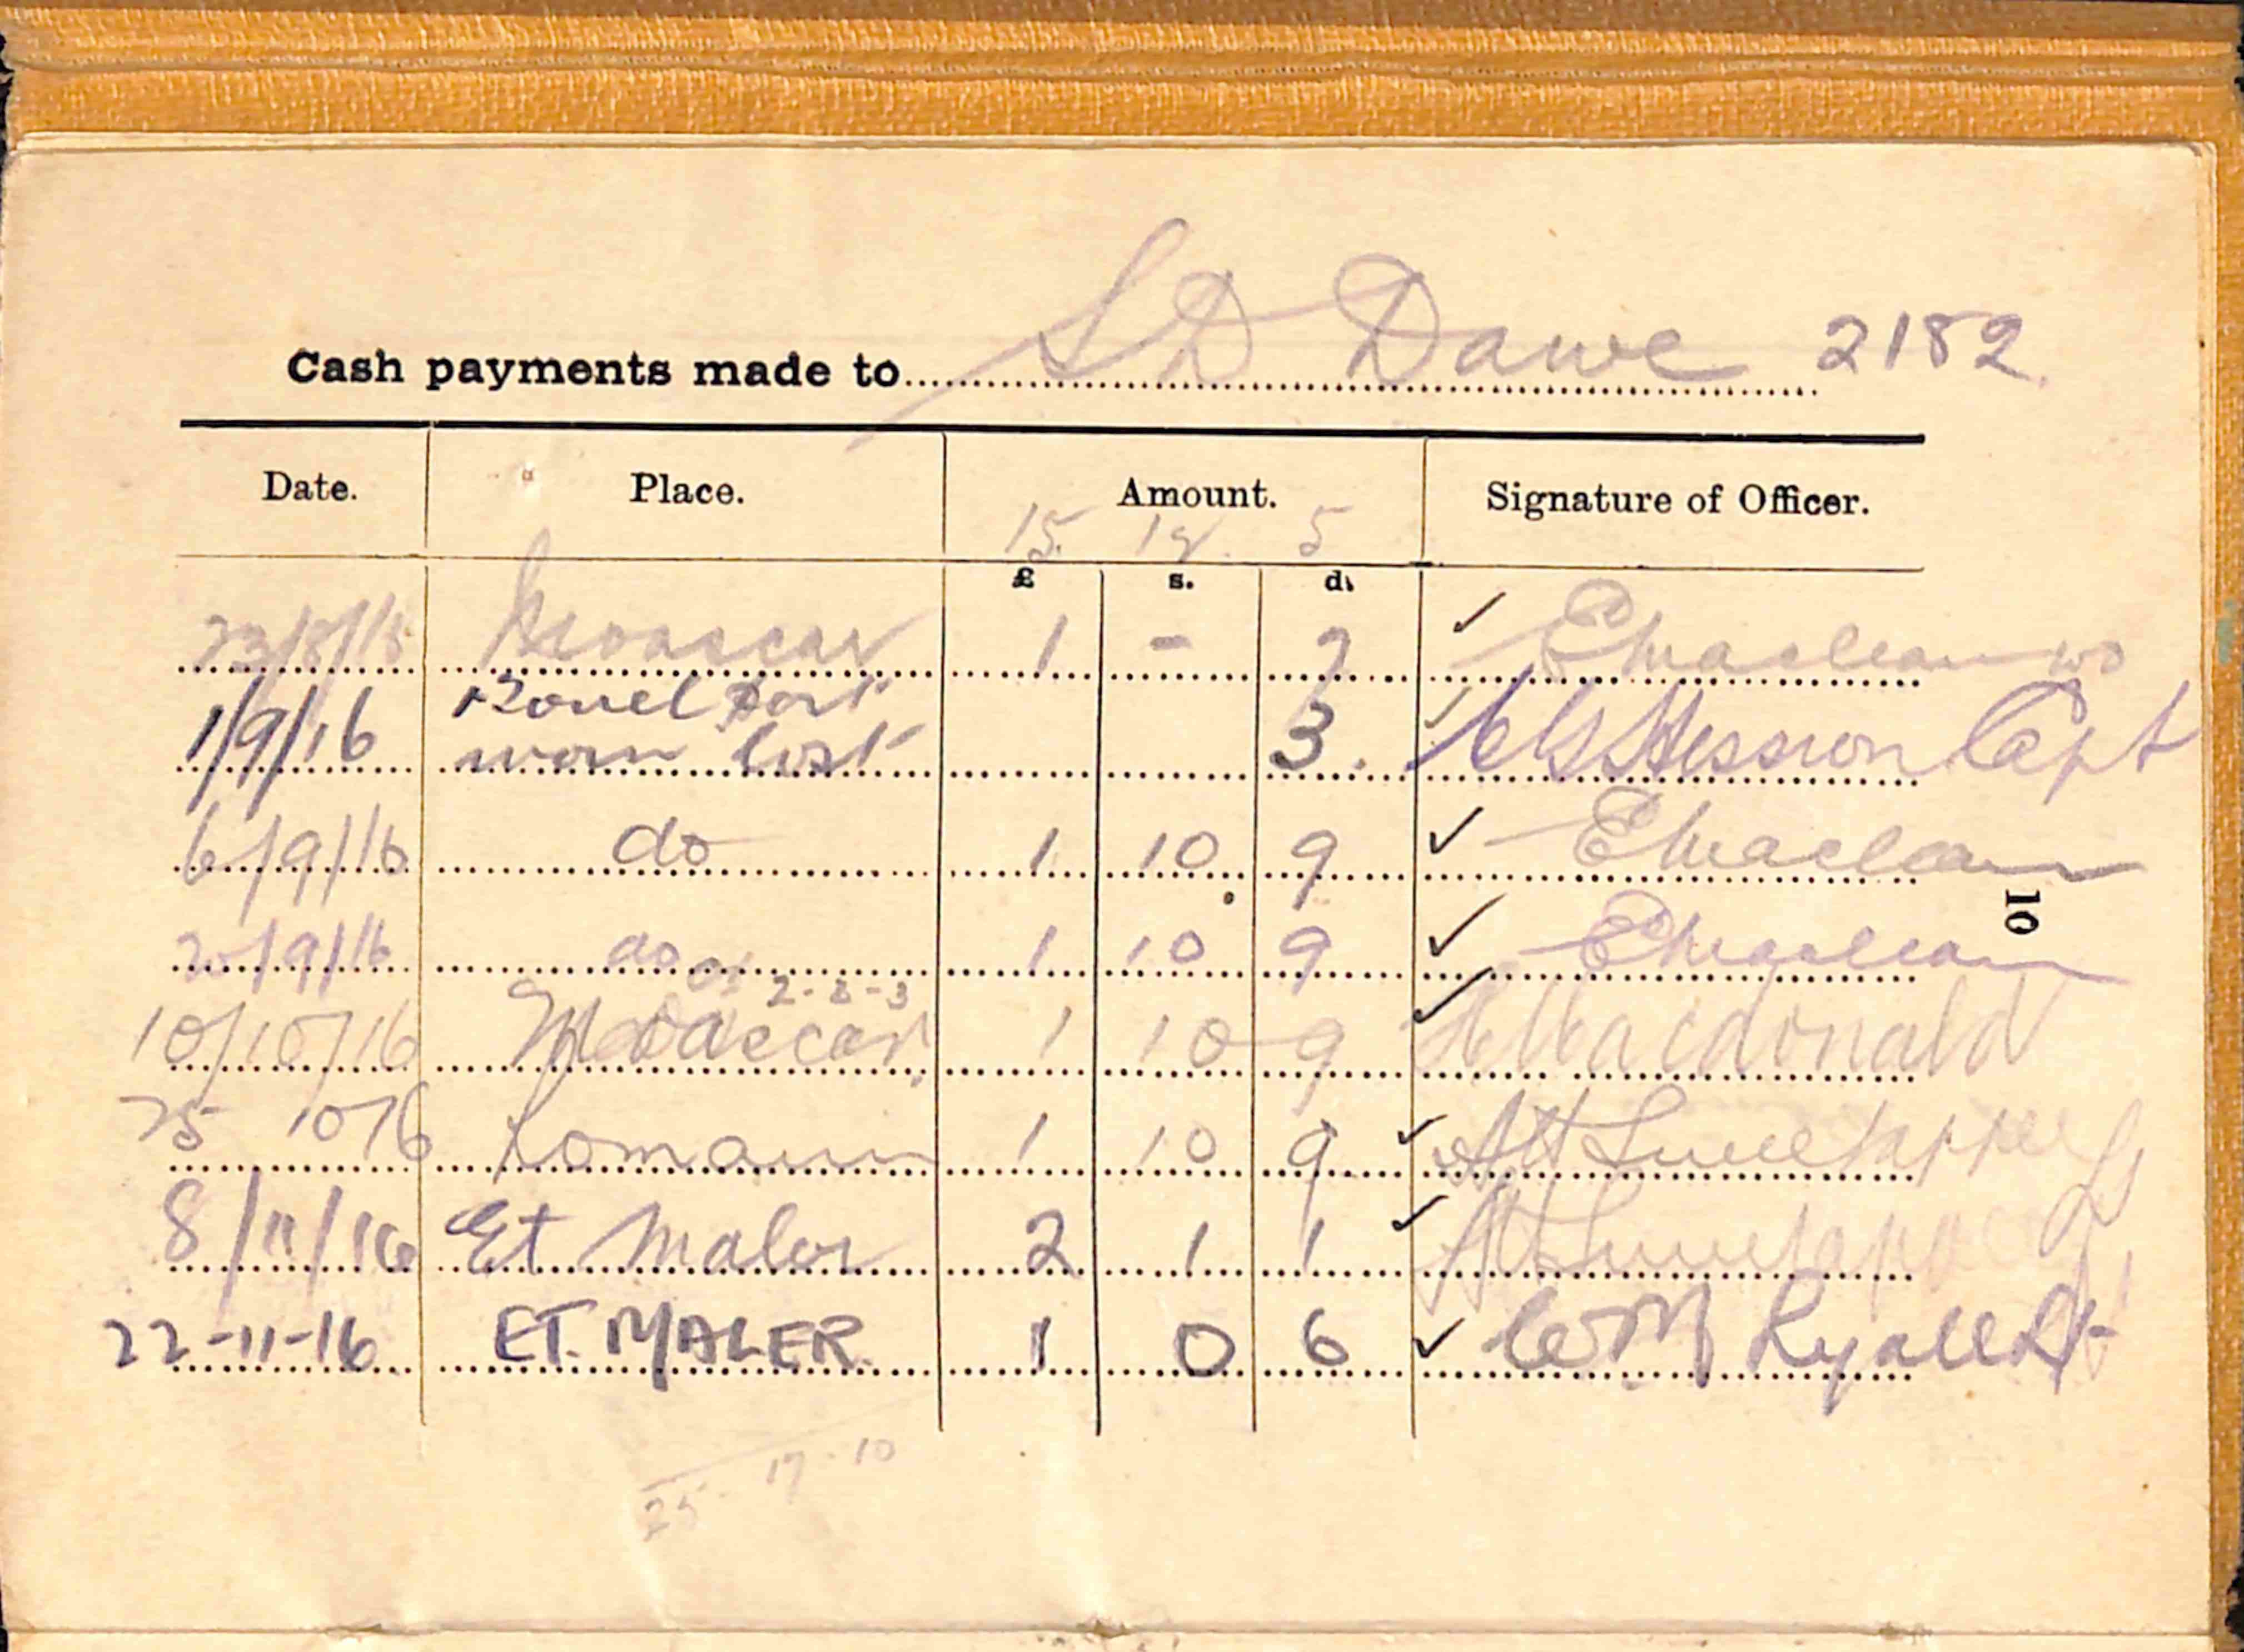 Cash payments made to S D Dawe 2182
Date. Place. Amount. Signature of Officer.
15. 18. 5
£ s. d.
Moascar 1 - 7 EMaclean
1/9/16 Towel part worn lost 3. Capt
6/9/16 do 1 10 9 EMaclean
20/9/16 do 1 10 9 EMaclean
10
2-8-3
10/10/16 Moascar 1 10 9 Macdonald
25 10 16 Romani 1 10 9
8/11/16 Et Maler 2 1 1
22-11-16 ET. MALER. 1 0 6 Ryall Lt
25-17-10